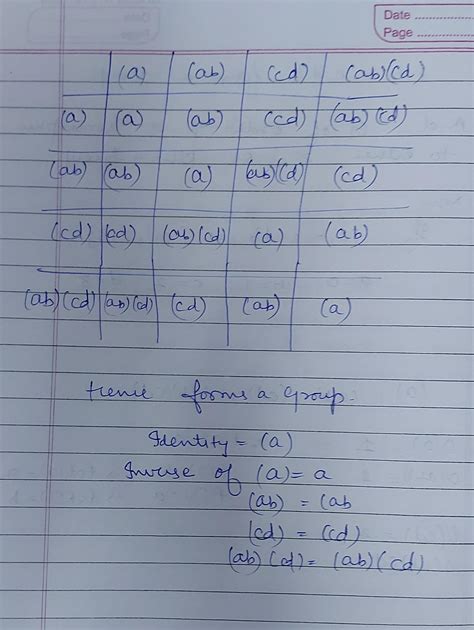 Date ..............
Page ..............
(a) (ab) (cd) (ab)(cd)
(a) (a) (ab) (cd) (ab)(cd)
(ab) (ab) (a) (ab)(cd) (cd)
(cd) (cd) (ab)(cd) (a) (ab)
(ab)(cd) (ab)(cd) (cd) (ab) (a)
Hence forms a group.
Identity = (a)
Inverse of (a) = a
(ab) = (ab
(cd) = (cd)
(ab)(cd) = (ab)(cd)